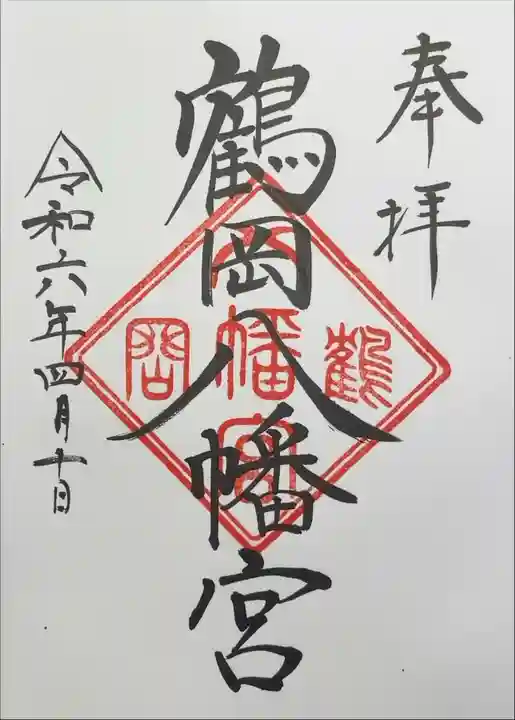 奉拝
鶴岡八幡宮
鶴
八幡宮
岡
令和六年四月十日